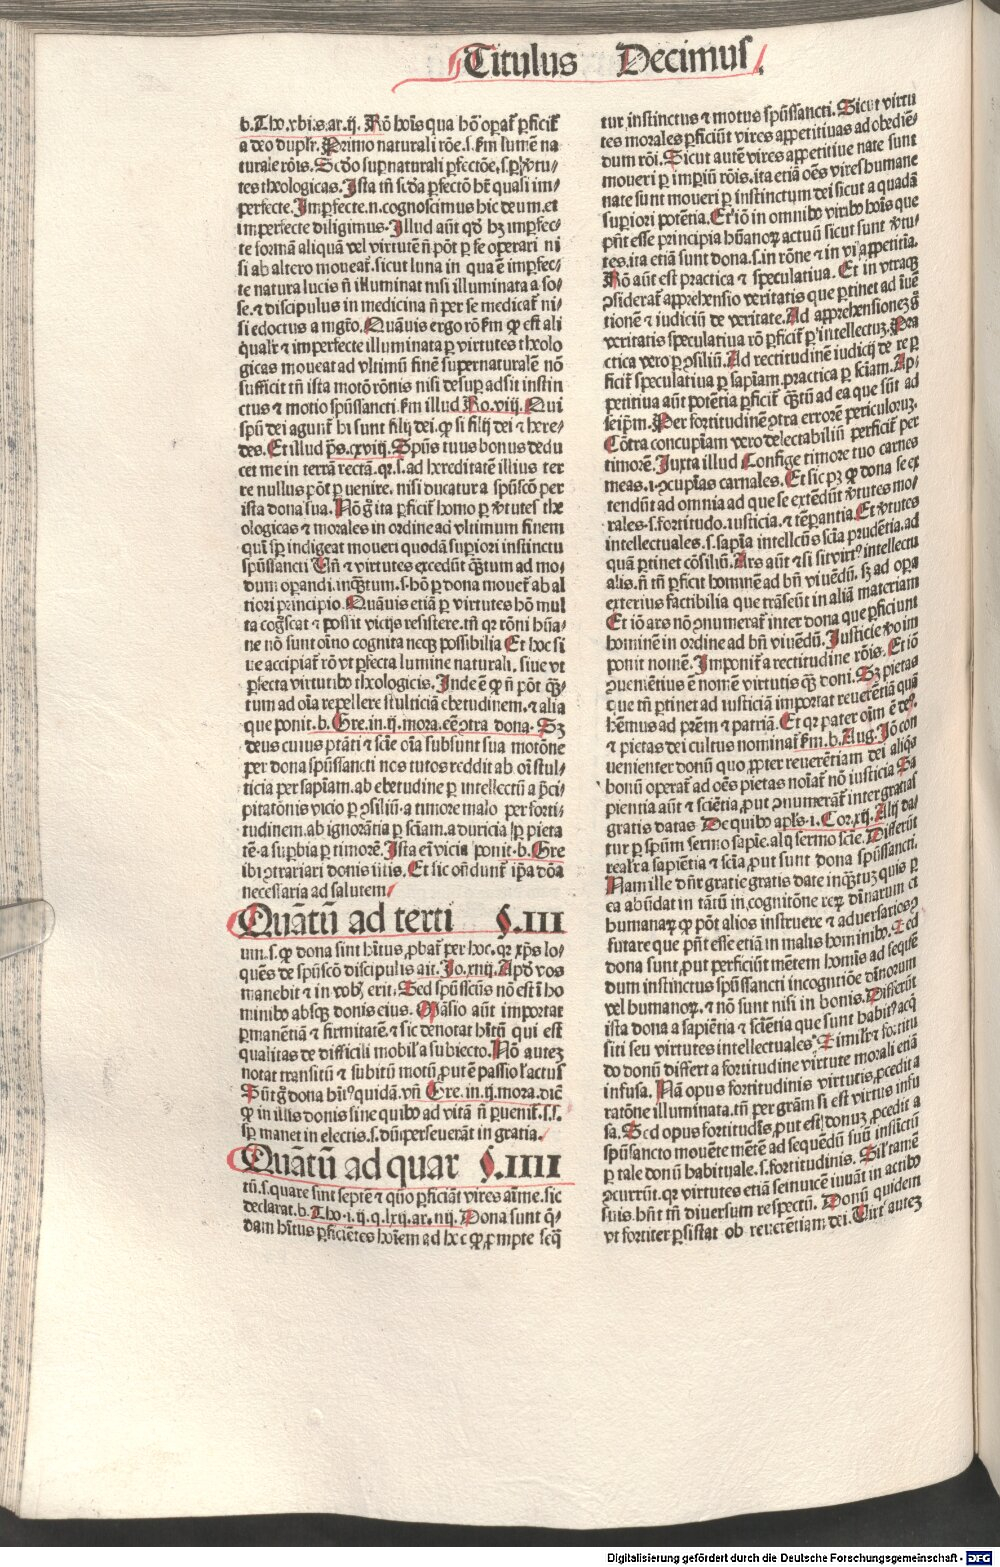 Titulus Decimus.
b. Tho. vbi. s. ar. ij. Rõ hoĩs qua hõ operat̃ ꝑficit̃
a deo duplr̃. Primo naturali rõe. s. ẜm lumẽ na
turale rõis. Scd̃o sup̃naturali ꝑfectiõe. s. ꝑ v̓tu-
tes theologicas. Ista tñ scd̃a ꝑfectõ hȝ quasi im-
perfecte. Imperfecte. n. cognoscimus hic deum. et
imperfecte diligimus. Illud aũt qd̓ hȝ imperfec-
te formã aliquã vel virtutẽ ñ põt ꝑ se operari ni
si ab altero moueat̃. sicut luna in qua ẽ imperfec-
te natura lucis ñ illuminat nisi illuminata a so-
le. ⁊ discipulus in medicina ñ per se medicat̃ ni-
si edoctus a mg̃ro. Quãuis ergo rõ ẜm ꝙ est ali
qualr̃ ⁊ imperfecte illuminata ꝑ virtutes theolo
gicas moueat ad vltimũ finẽ supernaturalẽ nõ
sufficit tñ ista motõ rõnis nisi desuꝑ adsit instin
ctus ⁊ motio spũssancti. ẜm illud Ro. viij. Qui
spũ dei agunt̃ hi sunt filij dei. ꝙ si filij dei ⁊ here-
des. Et illud ps̃. cxviij. Spũs tuus bonus dedu
cet me in terrã rectã. qr̃. s. ad hereditatẽ illius ter
re nullus põt ꝑuenire. nisi ducatur a spũscõ per
ista dona sua. Nõ g̃ ita ꝑficit̃ homo ꝑ v̓tutes the
ologicas ⁊ morales in ordine ad vltimum finem
quĩ sp̃ indigeat moueri quodã suꝑiori instinctu
spũssancti Tñ ⁊ virtutes excedũt q̃ȝtum ad mo-
dum oꝑandi. inq̃ȝtum. s. hõ ꝑ dona mouet̃ ab al
tiori principio. Quãuis etiã ꝑ virtutes hõ mul
ta cog̃scat ⁊ possit vicijs resistere. tñ qr̃ rõni hũa-
ne nõ sunt oĩno cognita necꝫ possibilia Et hoc si
ue accipiat̃ rõ vt ꝑfecta lumine naturali. siue vt
ꝑfecta virtutibꝰ theologicis. Inde ẽ ꝙ ñ põt q̃ȝ-
tum ad oĩa repellere stulticiã ebetudinem. ⁊ alia
que ponit. b. Gre. in. ij. mora. eẽ ↄtra dona. Sȝ
deus cuius ptãti ⁊ scĩe oĩa subsunt sua motõne
per dona spũssancti nos tutos reddit ab oĩ stul-
ticia per sapĩam. ab ebetudine ꝑ intellectũ a p̃ci-
pitatõnis vicio ꝑ ↄsiliũ. a timore malo per forti-
tudinem. ab ignorãtia ꝑ sciam. a duricia ꝑ pieta
tẽ. a suꝑbia ꝑ timorẽ. Ista eĩ vicia ponit. b. Gre
ibi ↄtrariari donis istis. Et sic oñdunt̃ ip̃a dõa
necessaria ad salutem
Quãtũ ad terti §. III
um. s. ꝙ dona sint hĩtus ꝓbat̃ per hoc. qr̃ xp̃s lo-
quẽs de spũscõ discipulis ait. Jo. xiiij. Apd̓ vos
manebit ⁊ in vob̓ erit. Sed spũssctũs nõ est ĩ ho
minibꝰ absqꝫ donis eius. Mãsio aũt importat
ꝑmanẽtiã ⁊ firmitatẽ. ⁊ sic denotat hĩtũ qui est
qualitas de difficili mobil̓ a subiecto. Nõ autez
notat transitũ ⁊ subitũ motũ ꝓut ẽ passio l̓ actus
Sũt g̃ dona hĩtꝰ quidã. vñ Gre. in. ij. mora. dic̃
ꝙ in illis donis sine quibꝰ ad vitã ñ ꝑuenit̃. s. s.
sp̃ manet in electis. s. dũ ꝑseuerãt in gratia.
Quãtũ ad quar §. IIII
tũ. s. quare sint septẽ ⁊ quõ ꝑficiãt vires aĩme. sic
declarat. b. Tho. i. ij. q. lxij. ar. iiij. Dona sunt q̃-
dam hĩtus ꝑficiẽtes hoĩem ad hoc ꝙ ꝓmpte seq̃
tur instinctus ⁊ motus spũssancti. Sicut virtu
tes morales ꝑficiũt vires appetitiuas ad obediẽ-
dum rõi. Sicut autẽ vires appetitiue nate sunt
moueri ꝑ imꝑiũ rõis. ita etiã oẽs vires humane
nate sunt moueri ꝑ instinctum dei sicut a quadã
suꝑiori potẽtia. Et iõ in omnibꝰ viribꝰ hoĩs que
pñt esse principia hũanoꝝ actuũ sicut sunt v̓tu-
tes. ita etiã sunt dona. s. in rõne ⁊ in vi appetitia.
Rõ aũt est practica ⁊ speculatiua. Et in vtraqꝫ
ↄsiderat̃ apprehensio veritatis que ꝑtinet ad ĩuẽ
tionẽ ⁊ iudiciũ de veritate. Ad apprehensionez g̃
veritatis speculatiua rõ ꝑficit̃ ꝑ intellectuȝ. Pra
ctica vero ꝑ ↄsiliũ. Ad rectitudinẽ iudicij de re ꝑ
ficit̃ speculatiua ꝑ sapĩam. practica ꝑ sciam. Ap-
petitiua aũt potẽtia ꝑficit̃ q̃ȝtũ ad ea que sũt ad
seip̃m. Per fortitudinẽ ↄtra errorẽ periculoruȝ.
Cõtra concupĩam vero delectabiliũ perficit̃ per
timorẽ. Juxta illud Confige timore tuo carnes
meas. i. ↄcupĩas carnales. Et sic pȝ ꝙ dona se ex
tendũt ad omnia ad que se extẽdũt v̓tutes mo-
rales. s. fortitudo. iusticia. ⁊ tẽꝑantia. Et v̓tutes
intellectuales. s. sapĩa intellectũs scĩa prudẽtia. ad
quã ꝑtinet cõsiliũ. Ars aũt ⁊ si sit virtꝰ intellectu
alis. ñ tñ ꝑficit hominẽ ad bñ viuẽdũ. sȝ ad oꝑa
exterius factibilia que trãseũt in aliã materiam
Et iõ ars nõ ↄnumerat̃ inter dona que ꝑficiunt
hominẽ in ordine ad bñ viuẽdũ. Justicie v̓o im
ponit nomẽ. Imponit̃ a rectitudine rõis. Et iõ
ↄueniẽtius ẽ nomẽ virtutis q̃ȝ doni. Sȝ pietas
que tñ ꝑtinet ad iusticiã importat reuerẽtiã quã
hẽmus ad prẽm ⁊ patriã. Et qr̃ pater oĩm ẽ deꝰ.
⁊ pietas dei cultus nominat̃ ẜm. b. Aug. Jõ con
uenienter donũ quo ꝓpter reuerẽtiam dei aliq̃s
bonũ operat̃ ad oẽs pietas noĩat̃ nõ iusticia Sa
pientia aũt ⁊ sciẽtia ꝓut ↄnumerãt̃ inter gratias
gratis datas De quibꝰ apl̃s. i. Cor. xij. Alij da-
tur ꝑ spũm sermo sapĩe. alij sermo scĩe. Differũt
real̓r a sapiẽtia ⁊ scĩa ꝓut sunt dona spũssancti.
Nam ille dñr gratie gratis date inq̃ȝtuȝ quis ꝑ
ea abũdat in tãtũ in cognitõne reꝝ diuinarum et
humanaꝝ ꝙ põt alios instruere ⁊ aduersarios ↄ
futare que pñt esse etiã in malis hominibꝰ. Sed
dona sunt ꝓut perficiũt mẽtem homĩs ad seq̃uẽ
dum instinctus spũssancti in cognitiõne diuinorum
vel humanoꝝ. ⁊ nõ sunt nisi in bonis. Differũt
ista dona a sapiẽtia ⁊ sciẽtia que sunt habitꝰ acq̃
siti seu virtutes intellectuales. Simil̓r ⁊ fortitu
do donũ differt a fortitudine virtute morali etiã
infusa. Nã opus fortitudinis virtutis ꝓcedit a
ratõne illuminata. tñ per grãm si est virtus infu
sa. Sed opus fortitudĩs ꝓut est donuȝ ꝓcedit a
spũsancto mouẽte mẽtẽ ad sequẽdũ suũ instĩctũ
ꝑ tale donũ habituale. s. fortitudinis. Sil̓ tamẽ
ↄcurrũt. qr̃ virtutes etiã se inuicẽ iuuãt in actibꝰ
suis. hñt tñ diuersum respectũ. Donũ quidem
vt fortiter ꝑsistat ob reuerẽtiam dei. Virtꝰ autez
Digitalisierung gefördert durch die Deutsche Forschungsgemeinschaft - DFG